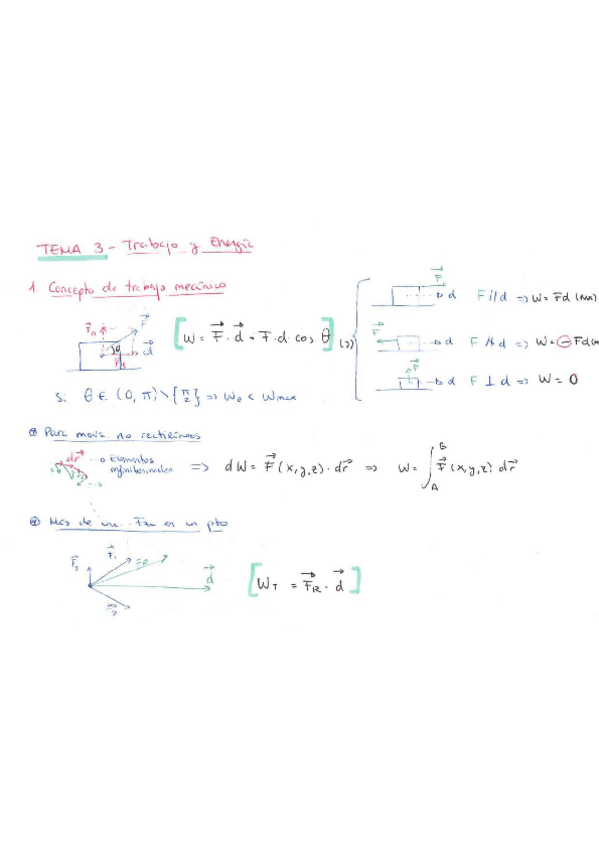 TEMA 3 - Trabajo y Energía
1. Concepto de trabajo mecánico
F d F // d => W = Fd (máx)
Fn F θ d Ft [W = F · d = F · d · cos θ] (J)
F d F // d => W = - Fd (m
F d F ⊥ d => W = 0
Si θ ∈ (0, π) \ {π/2} => Wθ < Wmax
⊕ Para movs. no rectilíneos
dr → Elementos infinitesimales => dW = F (x,y,z) · dr => W = ∫ F (x,y,z) dr
A B
⊕ Más de una Fza en un pto
F1 FR F3 d F2 [WT = FR · d]